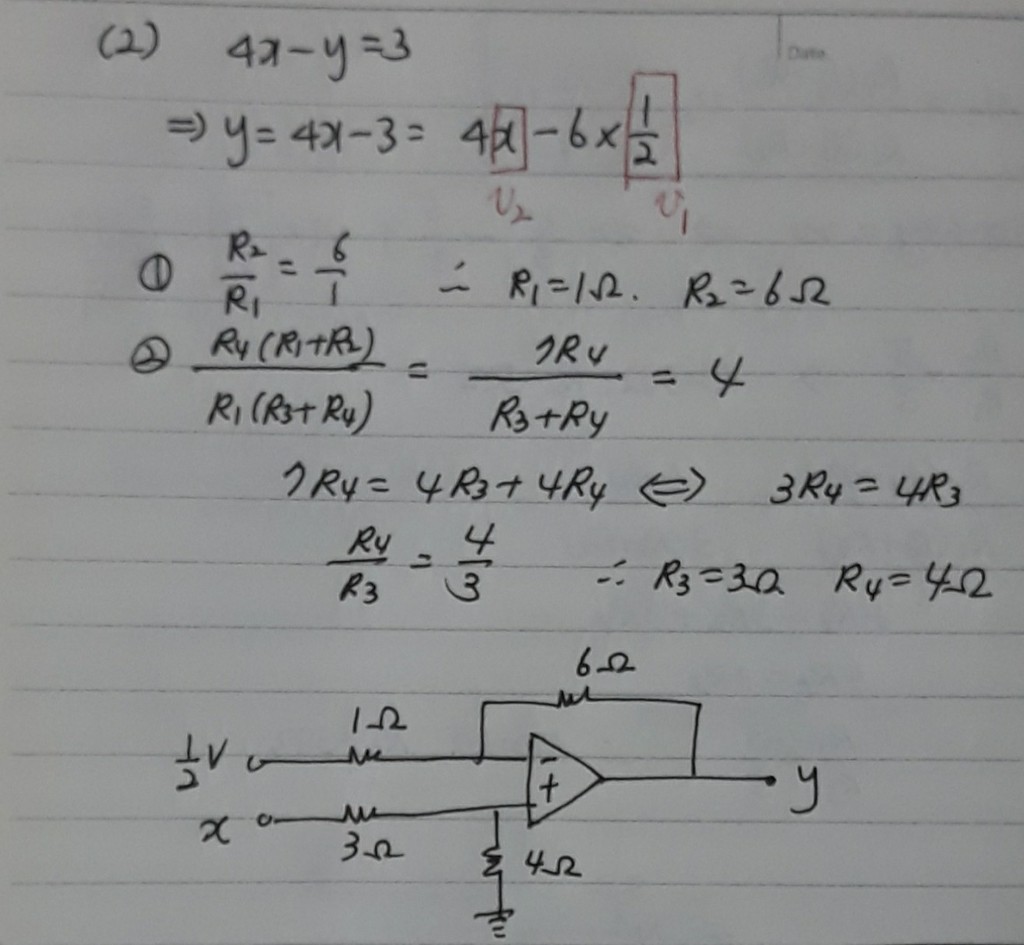 Date
(2) 4x-y=3
⇒ y= 4x-3= 4x-6×1/2
v₂ v₁
① R₂/R₁ = 6/1 ∴ R₁=1Ω. R₂=6Ω
② R₄(R₁+R₂)/R₁(R₃+R₄) = 7R₄/R₃+R₄ = 4
7R₄= 4R₃+4R₄ ⇔ 3R₄=4R₃
R₄/R₃ = 4/3 ∴ R₃=3Ω R₄=4Ω
6Ω
1Ω
1/2 V
-
+
y
x
3Ω
4Ω